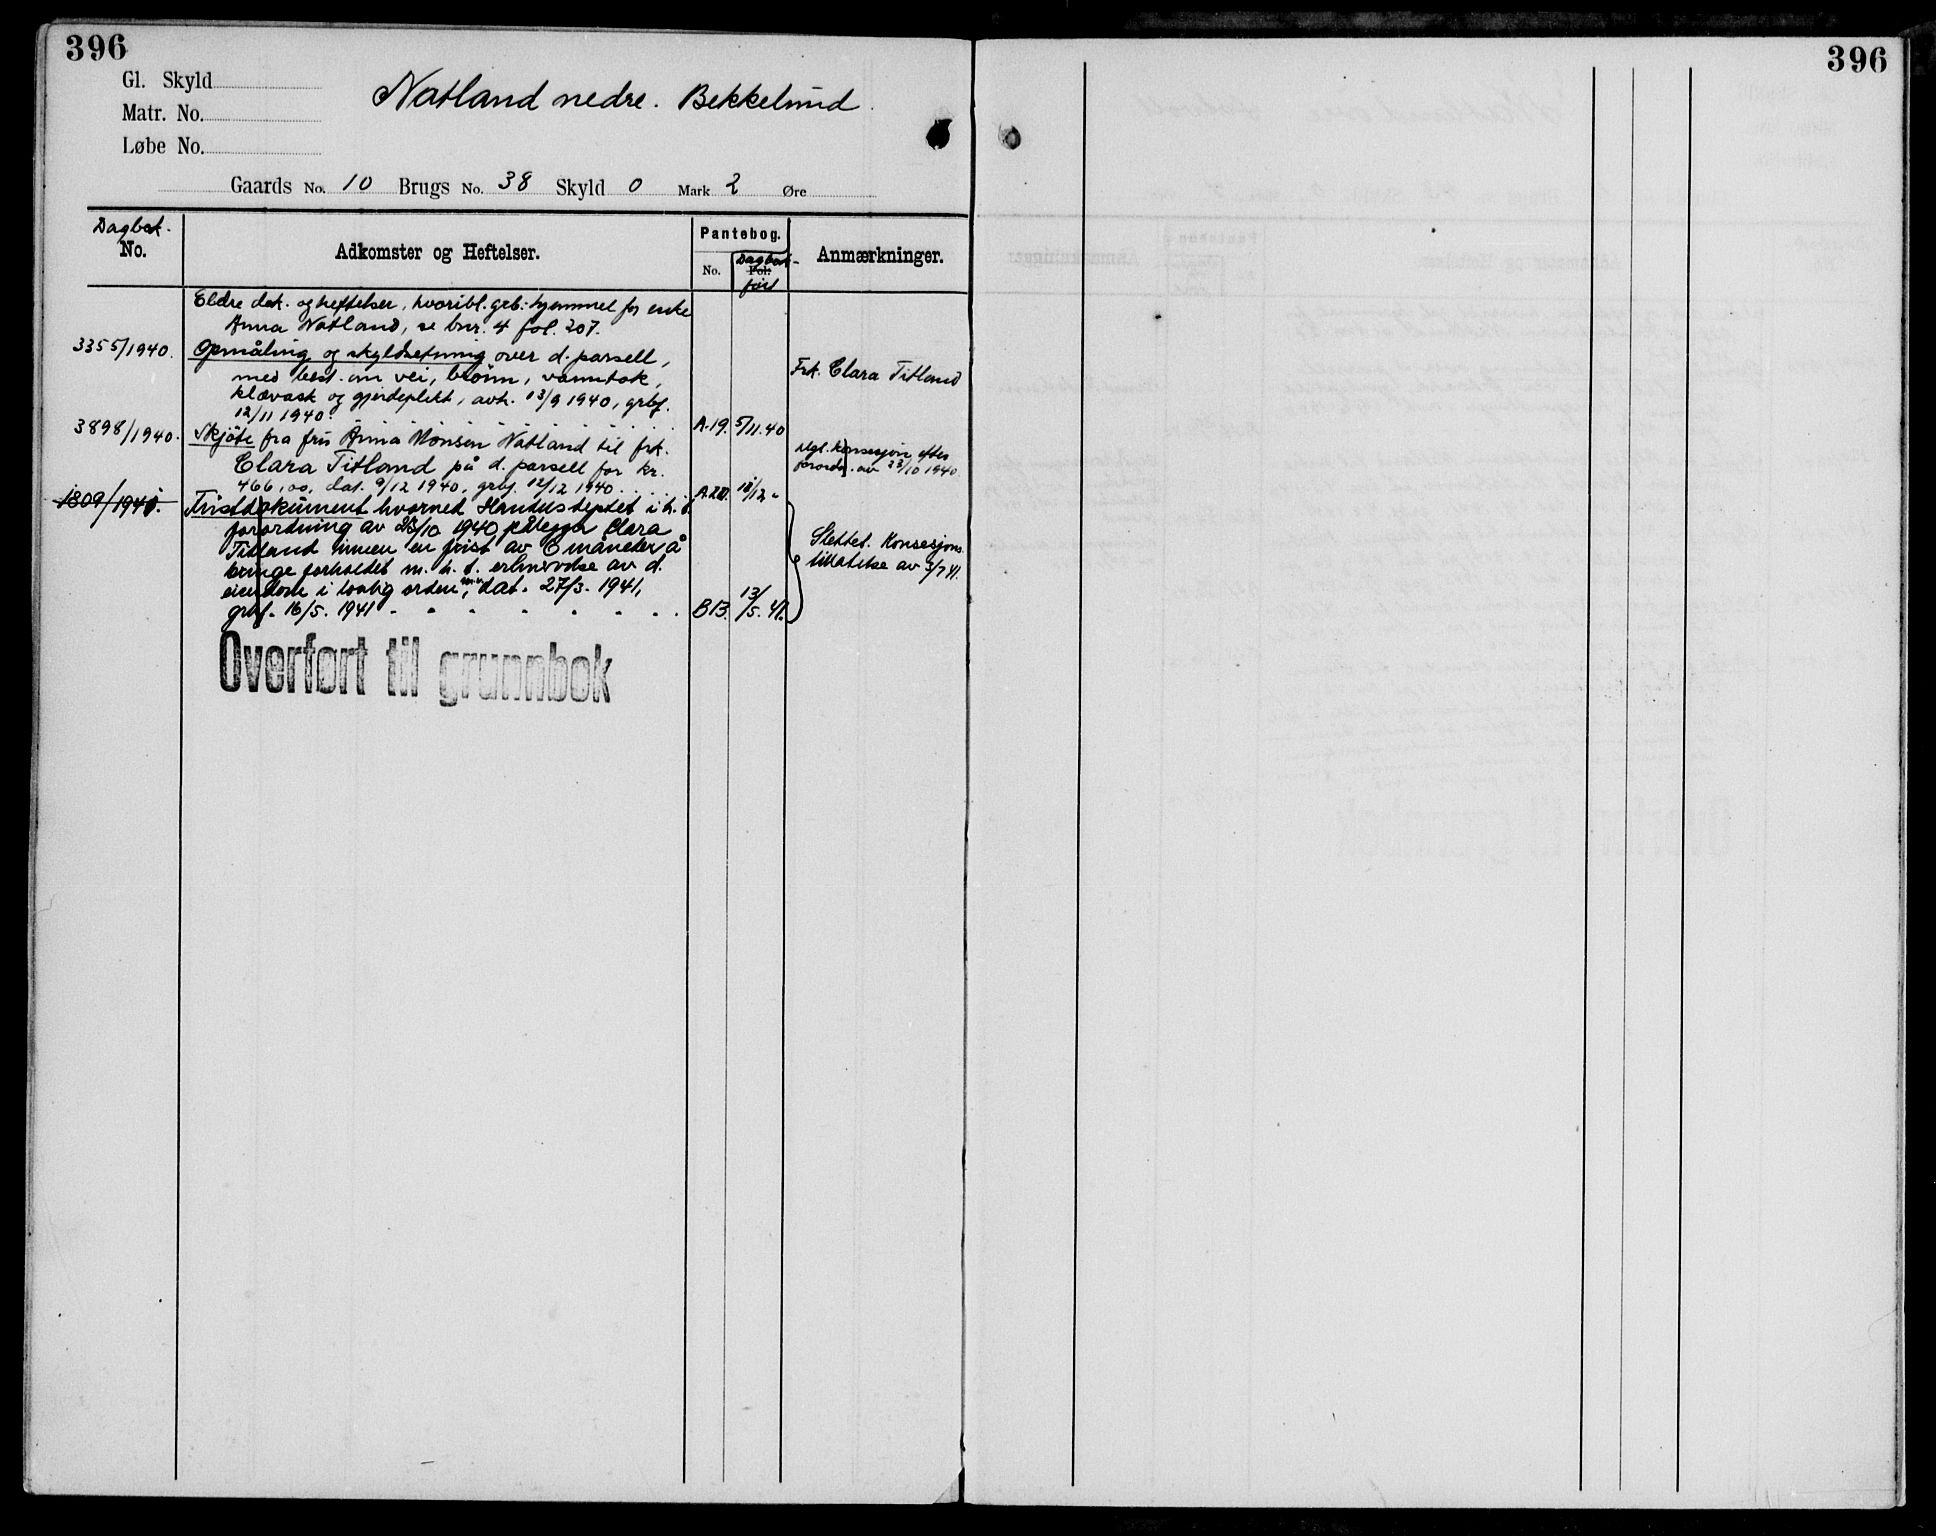 396
396
Gl. Skyld
Matr. No.
Løbe No.
Natland nedre. Bekkelund.
Gaards No. 10 Brugs No. 38 Skyld 0 Mark 2 Øre
Dagbok.
No.
Adkomster og Heftelser.
Pantebog.
No.
Dagbok-
Fol.
ført
Anmærkninger.
Eldre dok. og heftelser, hvoribl. grb: hjemmel for enke
Anna Natland, se bnr. 4 fol. 207.
3355/1940. Opmåling og skyldsetning over d. parsell,
med best. om vei, brønn, vanntak,
kloavask og gjerdeplikt, avh. 13/9 1940, grbf.
12/11 1940. A.19. 5/11.40
Frk. Clara Titland
3898/1940. Skjøte fra fru Anna Monsen Natland til frk.
Clara Titland på d. parsell for kr.
466,00, dat. 9/12 1940, grbf. 12/12 1940. A.20. 10/12 "
Mgl. konsesjon efter
forordn. av 23/10 1940
1809/1941. Fristdokument hvorved Handusdeptet i h. t.
forordning av 23/10 1940 pålegger Clara
Titland innen en frist av 6 måneder å
bringe forholdet m. h. t. erhvervelse av d.
eiendom i lovlig orden, m.v. dat. 27/3. 1941,
grbf. 16/5. 1941 B13. 13/5. 41.
Slettet. Konsesjons-
tillatelse av 3/7 41.
Overført til grunnbok